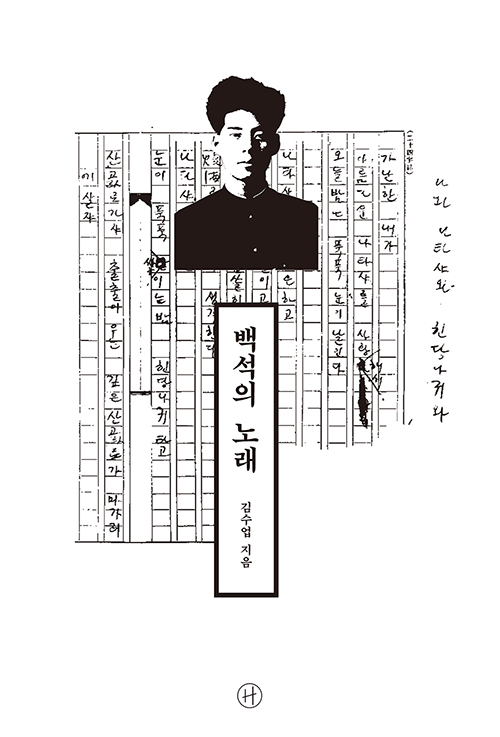 나와 나타샤와 힌당나귀와
가난한 내가
아름다운 나타샤를 사랑해서
오늘밤은 푹푹 눈이 날린다
나타샤 은 하고
생각한다
나타샤
눈이 푹푹 이는밤 힌당나귀타고
산골로가쟈 출출이 우는 깊은산골로가 마가리
에 살쟈
백석의 노래
김수업 지음
H